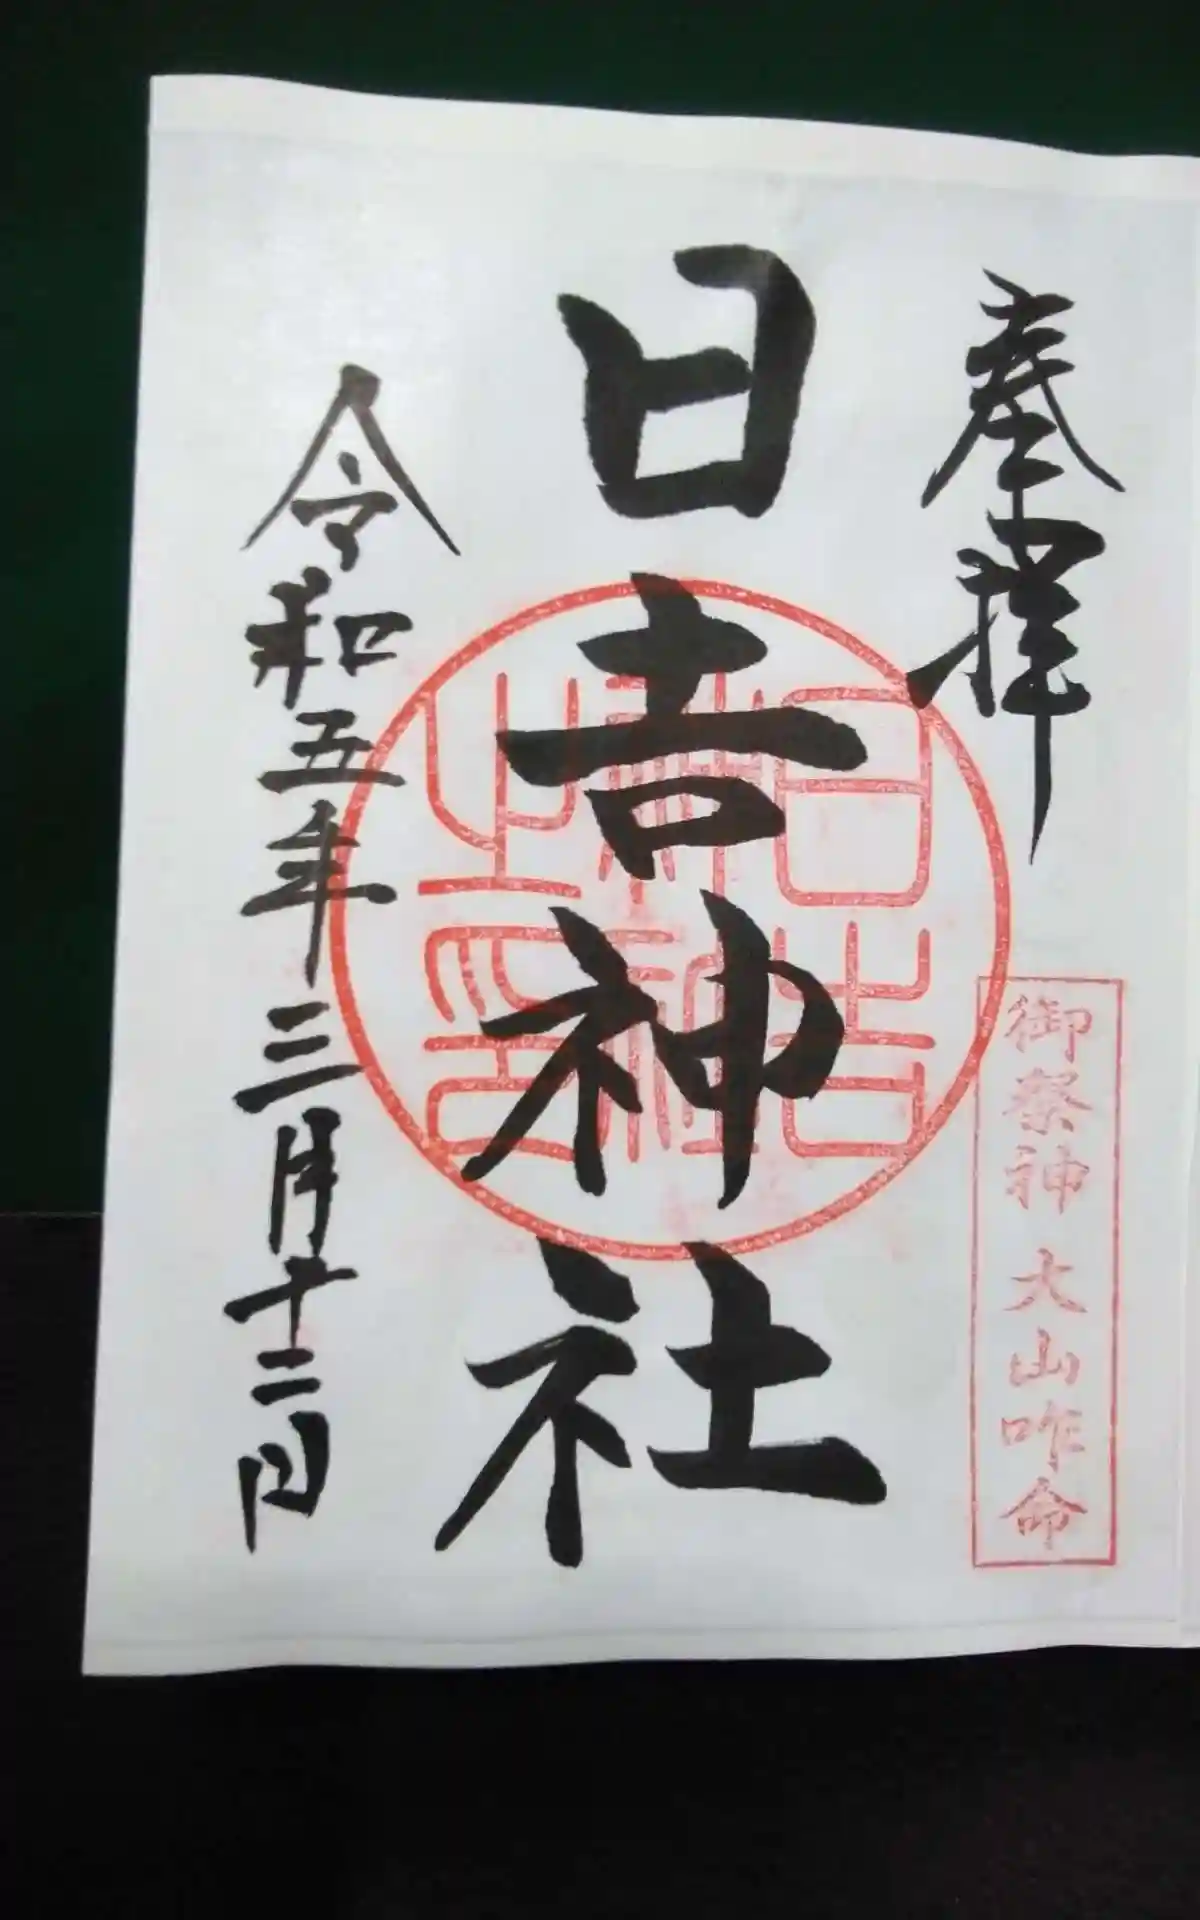 奉拝
御祭神 大山咋命
日吉神社
日吉神社之印
令和五年三月十二日